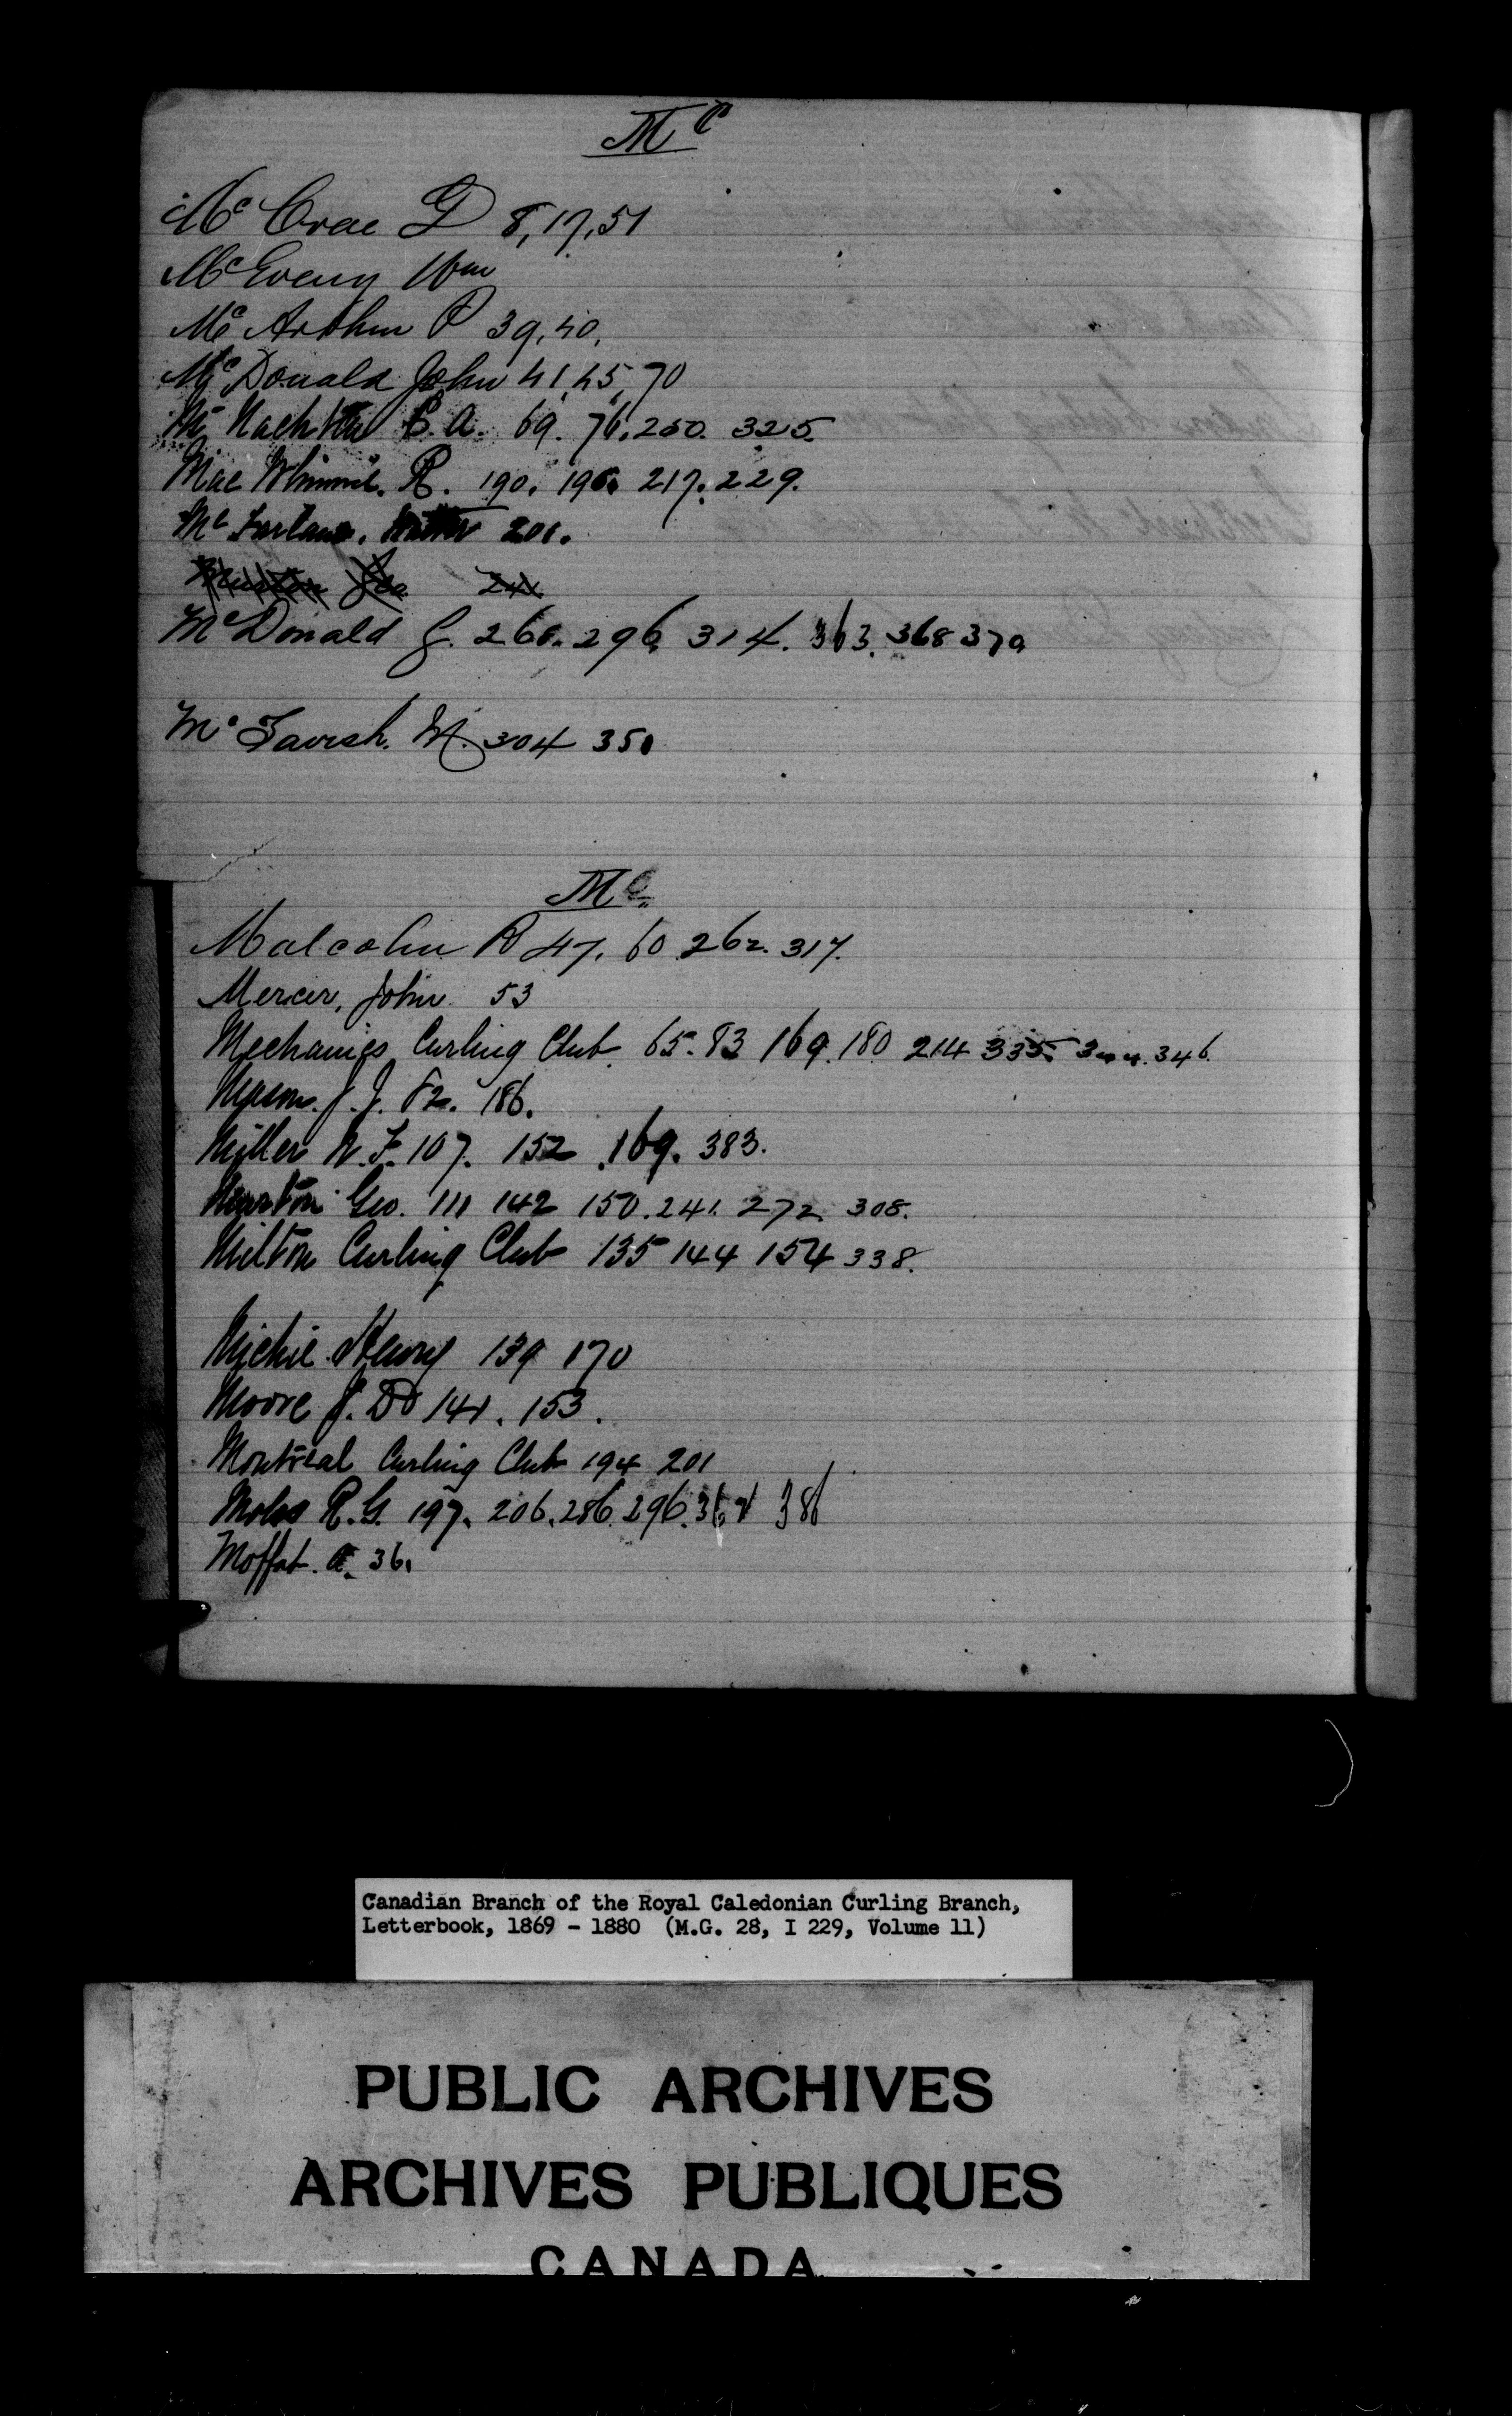 Mc
McCrae D 8, 17, 51
McEveny Wm
McArthur P 39, 40,
McDonald John 41, 45, 70
McNachtan E. A. 69. 76. 250. 325.
MacWhinnie. R. 190. 217. 229.
McFarlane. 201.
McDonald J. 268. 296 314. 363. 368 379
McTavish. W. 304 350
M
Malcolm R 47. 60. 262. 317.
Mercer, John 53
Mechanics Curling Club. 65. 83 169. 180 214 335. 346.
Mason. J. J. 82. 186.
Miller W. F. 107. 152. 169. 383.
Murton Geo. 111 142 150. 241. 272. 308.
Milton Curling Club 135 144 154 338.
Michie Henry 139 170
Moore J. D 141. 153.
Montreal Curling Club 194 201
R. G. 197. 206. 286. 296. 386
Moffat. A. 36.
Canadian Branch of the Royal Caledonian Curling Branch,
Letterbook, 1869 - 1880 (M.G. 28, I 229, Volume 11)
PUBLIC ARCHIVES
ARCHIVES PUBLIQUES
CANADA